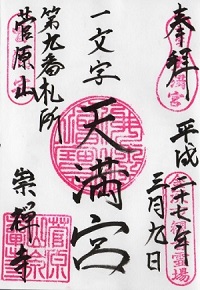 奉拝
平成二十七年三月九日
一文字
天満宮
第九番札所
菅原山
崇禅寺